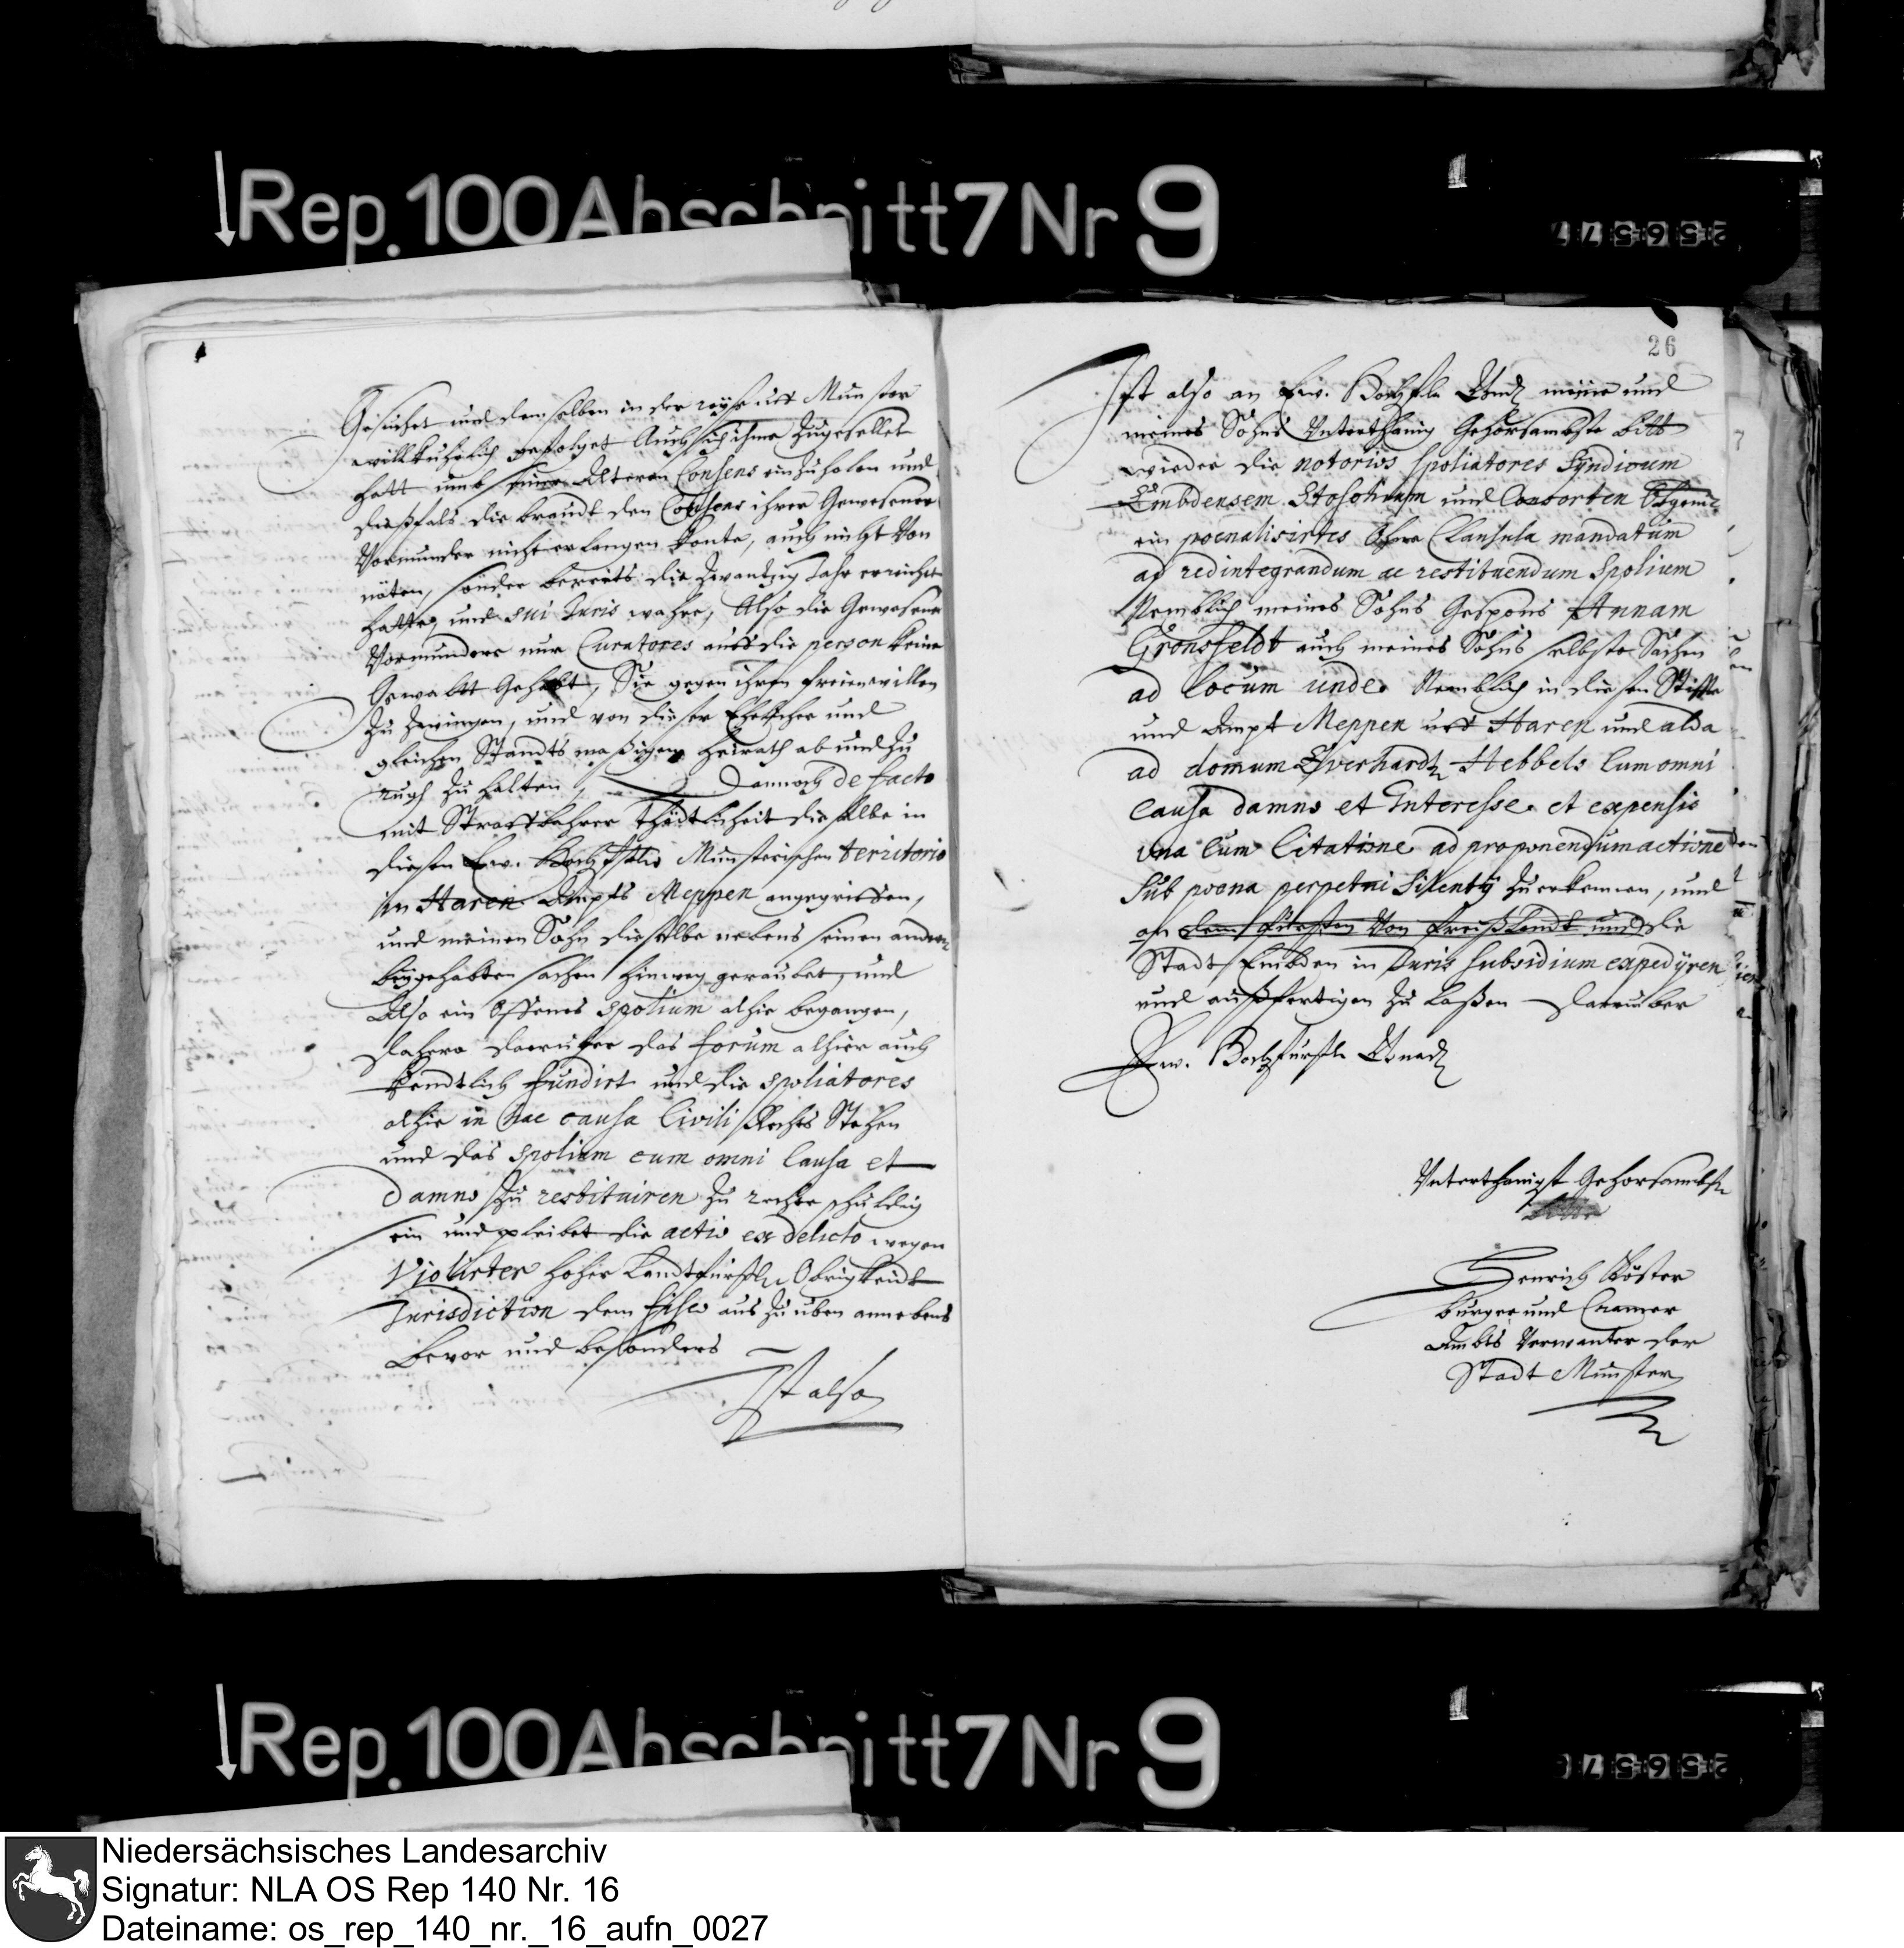 Rep. 100 Abschnitt 7 Nr 9
Gesuchet und demselben in der reyse uff Munster
willkuhrlich gefolget Auch sich ihme zugesellet
hatt umb seine Älteren Consens einzuholen und
dießfals die braudt den Consens ihrer Gewesener
Vormunder nicht erlangen konte, auch nicht von
nöten, sonder bereits die zwantzig Jahr erreichet
hatte, und sui Juris wahre, Also die Gewesene
Vormundere nur Curatores auff die person keine
Gewaltt Gehabt, Sie gegen ihren freien willen
zu zwingen, und von dieser Ehelicher und
gleichen Standts maßigen heirath ab und zu
rugh zu halten, Dannoch de facto
mit Straffbahrer thädtlicheit dieselbe in
diesen Ew. Hochfstl. Munsterischen territorio
in Haren Ampts Meppen angegriffen,
und meinen Sohn dieselbe nebens seinen andern
beygehabten sachen hinweg geraubet, und
Also ein offenes spolium alhie begangen,
dahero daruber das forum alhier auch
kendtlich fundirt und die spoliatores
alhie in hac causa Civili Rechts Stehen
und das spolium cum omni Causa et
damno zu restituiren zu rechte schuldig
sein und pleibet die actio ex delicto wegen
Violirter hoher Landtfürstl. Obrigkeidt
Jurisdiction dem fisco aus zu uben annebens
bevor und besonders
Ist also
26
Ist also an Ew. Hochfstl. Gnad. meine und
meines Sohns Unterthänig Gehorsambste bitt
wieder die notorios spoliatores Syndicum
Embdensem Stoschium und Consorten
ein poenalisirtes Ohne Clausula mandatum
ad redintegrandum ac restituendum Spolium
Nemblich meines Sohns Gespons Annam
Gronsfeldt auch meines Sohns selbste Sachen
ad locum unde. Nemblich in diesen Stiffte
und Ampt Meppen uff Haren und alda
ad domum Everhardt Hebbels Cum omni
Causa damno et Interesse. et expensis
una Cum Citatione ad proponendum actione
sub poena perpetui Silentÿ zu erkennen, und
an dem fürsten von freißlandt und die
Stadt Embden in Juris subsidium expedÿren
und außfertigen zu laßen daruber
Ew. Hochfürstl. Gnad.
Unterthänigst Gehorsambst
Henrich Köster
burger und Cramer
Ambts Verwanter der
Stadt Munster
Rep. 100 Abschnitt 7 Nr 9
Niedersächsisches Landesarchiv
Signatur: NLA OS Rep 140 Nr. 16
Dateiname: os_rep_140_nr._16_aufn_0027